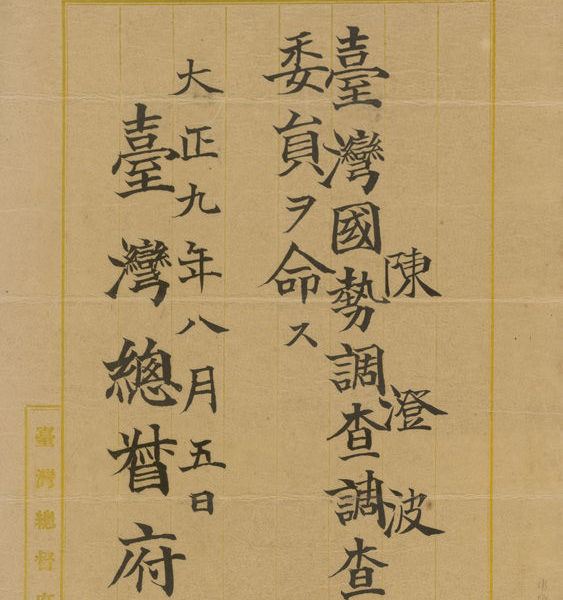 陳澄波
臺灣國勢調查調查
委員ヲ命ス
大正九年八月五日
臺灣總督府
臺灣總督府